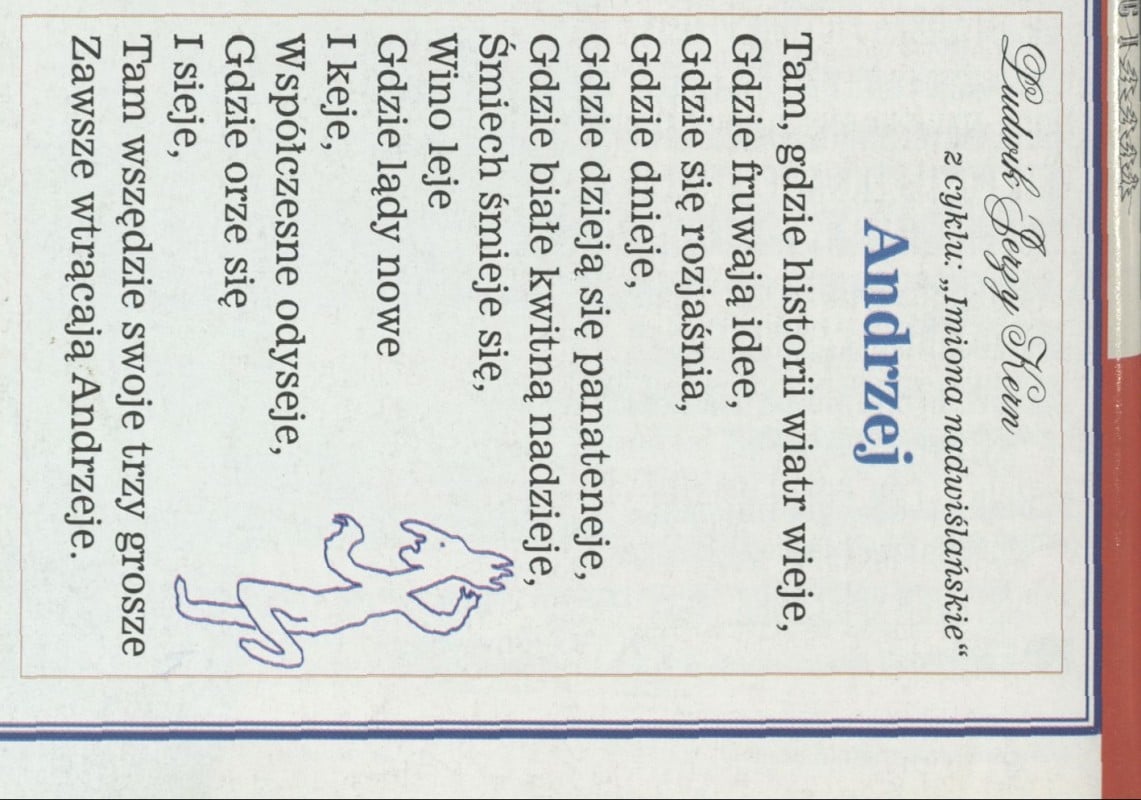 Ludwik Jerzy Kern
z cyklu: „Imiona nadwiślańskie“
Andrzej
Tam, gdzie historii wiatr wieje,
Gdzie fruwają idee,
Gdzie się rozjaśnia,
Gdzie dnieje,
Gdzie dzieją się panateneje,
Gdzie białe kwitną nadzieje,
Śmiech śmieje się,
Wino leje
Gdzie lądy nowe
I keje,
Współczesne odyseje,
Gdzie orze się
I sieje,
Tam wszędzie swoje trzy grosze
Zawsze wtrącają Andrzeje.